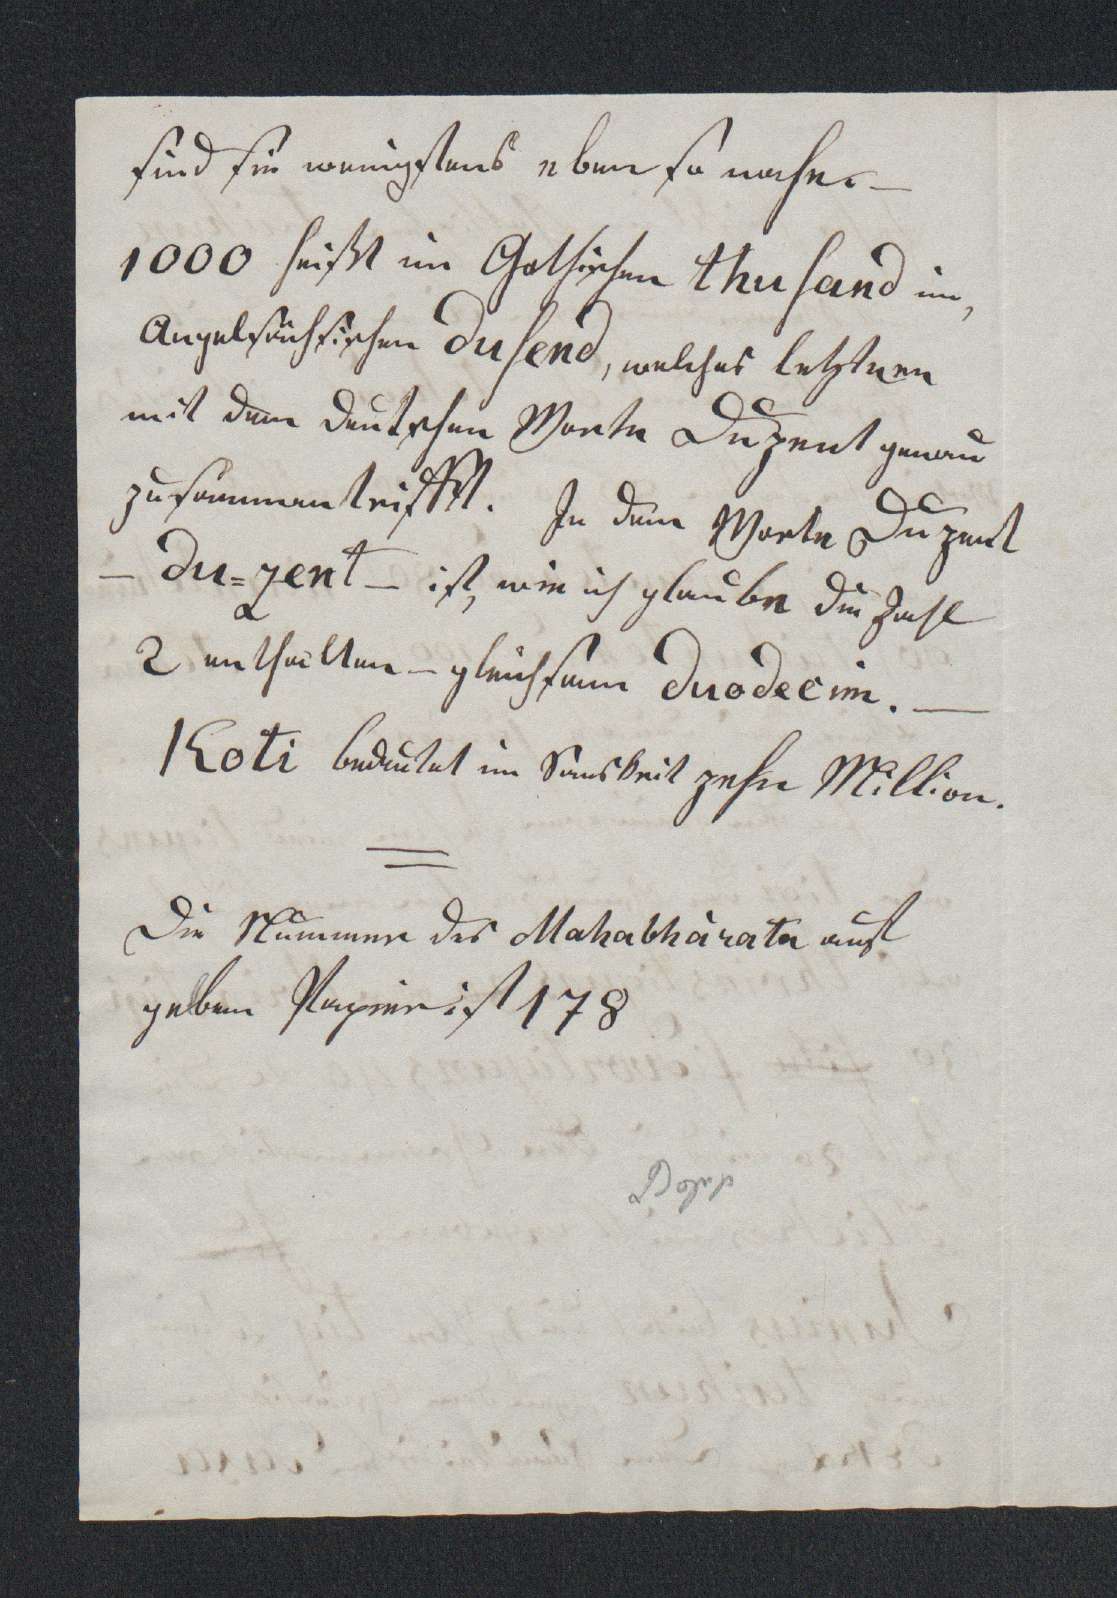 sind sie wenigstens eben so nahe. —
1000 heißt im Gothischen thusand im,
Angelsächsischen dusend, welches letztere
mit dem deutschen Worte Duzent genau
zusammentrifft. In dem Worte Duzent
— du=zent — ist, wie ich glaube die Zahl
2 enthalten — gleichsam duodecim. —
Koti bedeutet im Sanskrit zehn Million.
Die Nummer des Mahabhárata auf
gelbem Papier ist 178
Bopp